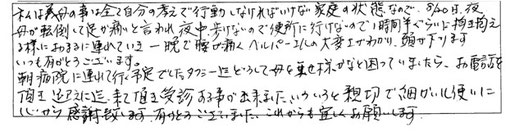 私は義母の事は全て自分の考えで行動しなければいけない家庭の状態なので、8/20日、夜
母が転倒して足が痛いと言われ夜中歩けないので便所に行けないので1時間半ぐらいに抱き抱え
る様におまるに連れていき一晩で腰が痛くヘルパーさんの大変さがわかり、頭が下ります
いつも有がとうございます。
朝病院に連れて行く予定でしたタクシー迄どうして母を乗せ様かなと困っていましたら、お電話を
頂き迎えに迄来て頂き受診する事が出来ました、いろいろと親切で細かい心使いに
心から感謝致します。有がとうございました、これからも宜しくお願いします。